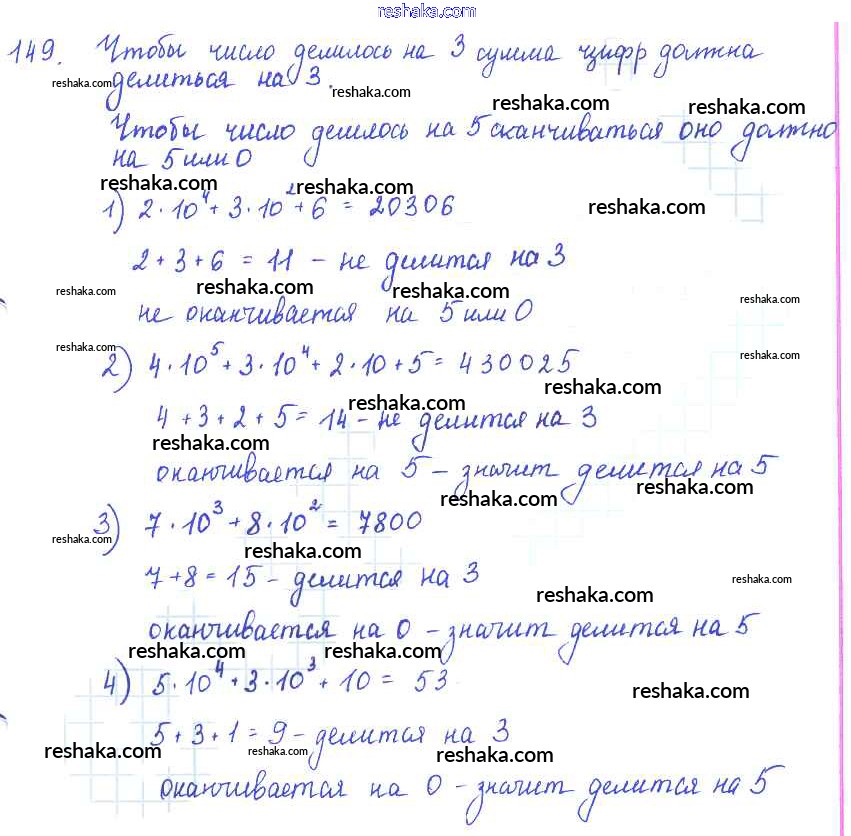 reshaka.com
149. Чтобы число делилось на 3 сумма цифр должна
делиться на 3.
reshaka.com reshaka.com reshaka.com reshaka.com
Чтобы число делилось на 5 оканчиваться оно должно
на 5 или 0
reshaka.com reshaka.com
1) 2·10⁴+3·10²+6 = 20306
reshaka.com
2+3+6 = 11 - не делится на 3
reshaka.com reshaka.com reshaka.com reshaka.com
не оканчивается на 5 или 0
reshaka.com reshaka.com
2) 4·10⁵+3·10⁴+2·10+5= 430025
reshaka.com
4+3+2+5= 14 - не делится на 3
reshaka.com reshaka.com
оканчивается на 5 - значит делится на 5
reshaka.com reshaka.com
3) 7·10³+8·10² = 7800
reshaka.com reshaka.com
7+8=15 - делится на 3
reshaka.com reshaka.com
оканчивается на 0 - значит делится на 5
reshaka.com reshaka.com
4) 5·10⁴+3·10³+10= 53
reshaka.com
5+3+1=9 - делится на 3
reshaka.com reshaka.com reshaka.com
оканчивается на 0 - значит делится на 5